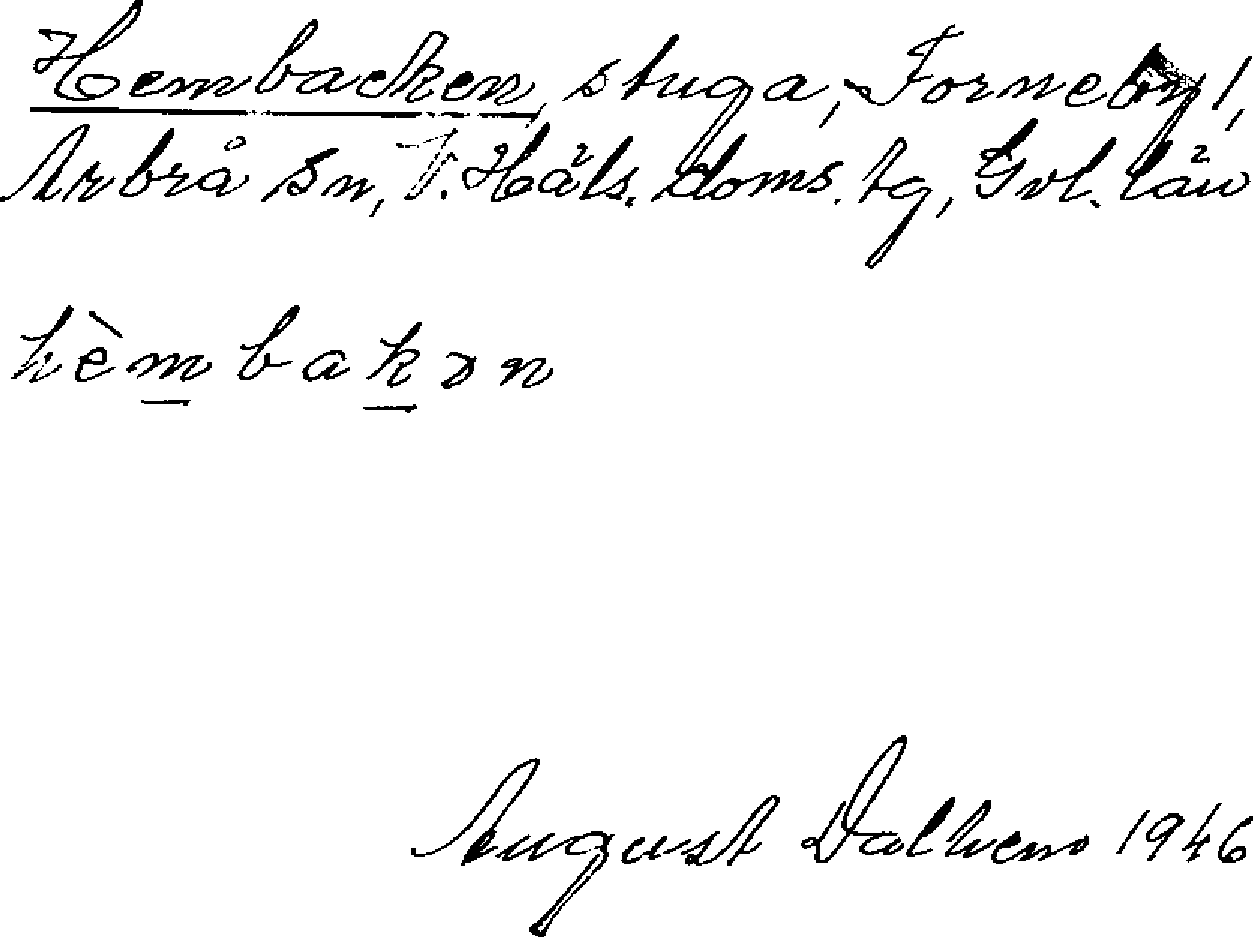 Hembacken, stuga, Forneby 1,
Arbrå sn, V. Häls. doms. tg, Gvl. län
hèmbakən
August Dalhem 1946